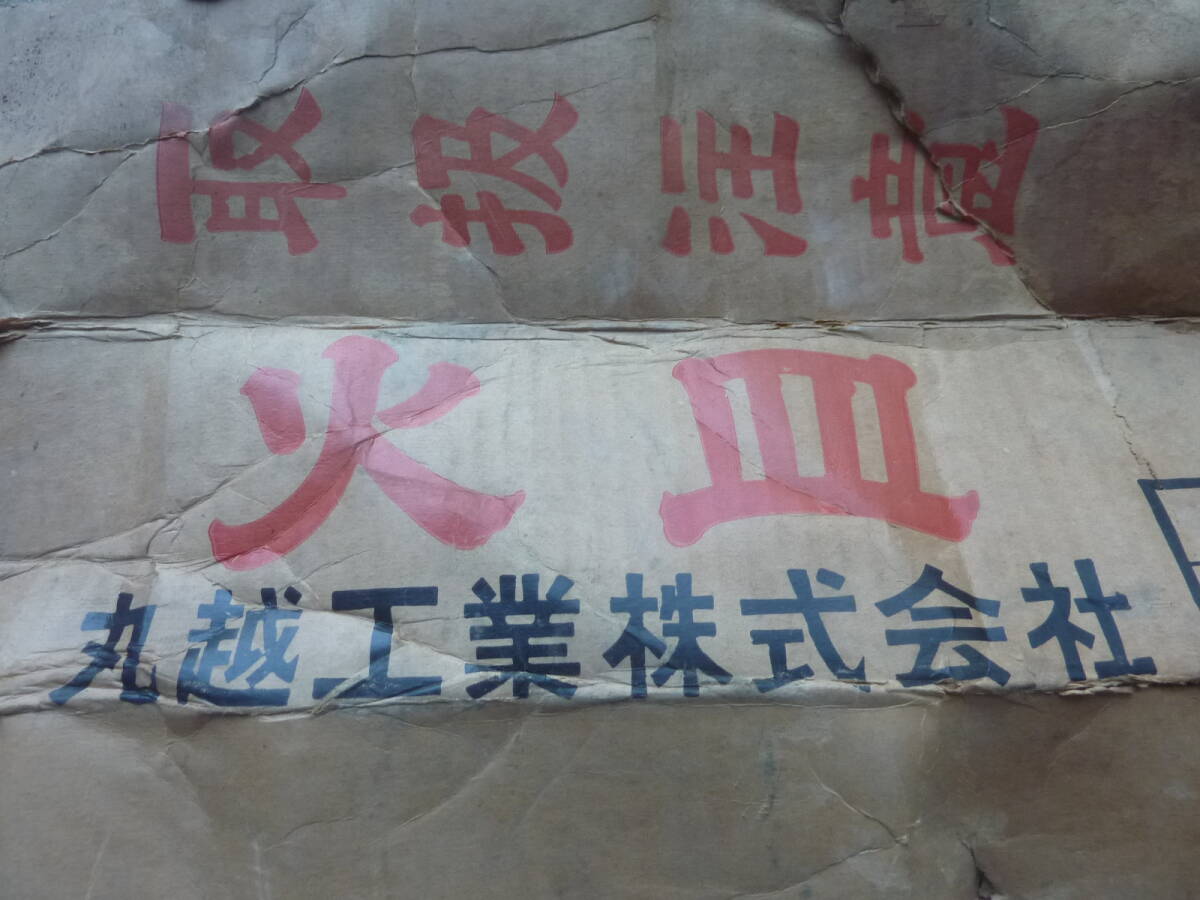 取扱注意
火皿
丸越工業株式会社